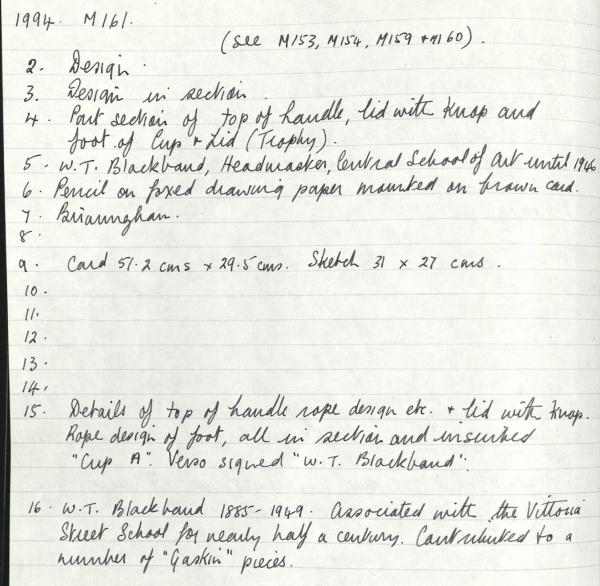 1994. M161.
(see M153, M154, M159 + M160).
2. Design.
3. Design in section.
4. Part section of top of handle, lid with knop and
foot of Cup + Lid (Trophy).
5. W.T. Blackband, Headmaster, Central School of Art until 1946
6. Pencil on foxed drawing paper mounted on brown card.
7. Birmingham.
8.
9. Card 51.2 cms x 29.5 cms. Sketch 31 x 27 cms.
10.
11.
12.
13.
14.
15. Details of top of handle rope design etc. + lid with knop.
Rope design of foot, all in section and inscribed
"Cup A". Verso signed "W.T. Blackband".
16. W.T. Blackband 1885-1949. Associated with the Vittoria
Street School for nearly half a century. Contributed to a
number of "Gaskin" pieces.